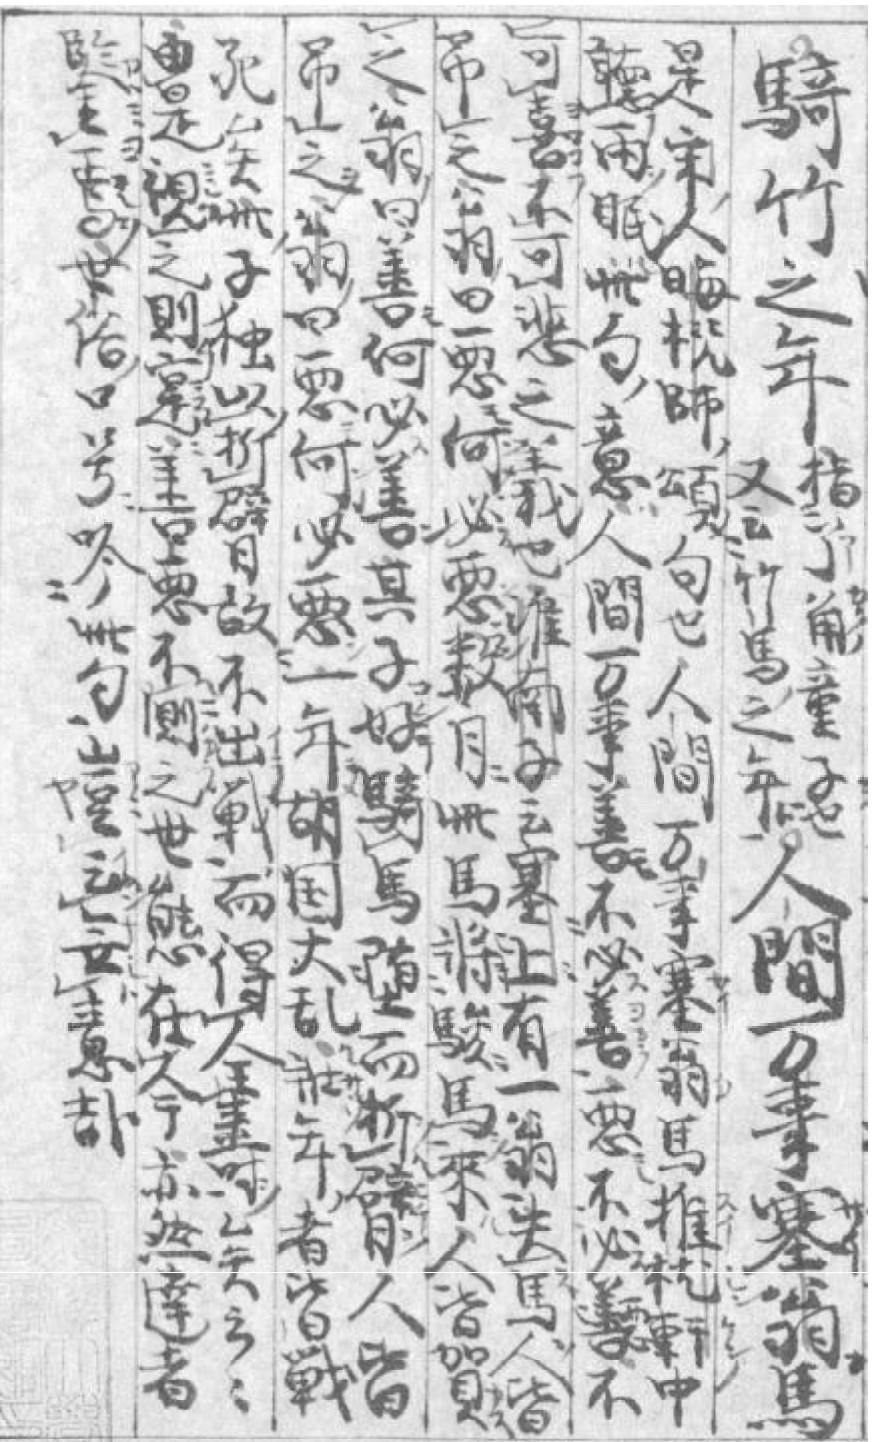 騎竹之年 指了角童子也 又云竹馬之年 人間万事塞翁馬
是宋人晦机師頌句也人間万事塞翁馬推枕軒中
聴雨眠此句意人間万事善不必善悪不必悪不
可喜不可悲之義也淮南子云塞上有一翁失馬人皆
吊之翁曰悪何必悪数月此馬将駿馬来人皆賀
之翁曰善何必善其子好騎馬堕而折臂人皆
吊之翁曰悪何必悪一年胡国大乱壮年者皆戦
死矣此子独以折臂故不出戦而得人矣云々
由是視之則寔善悪不測之世態在人亦然達者
世俗口号吟此句豈云無意哉